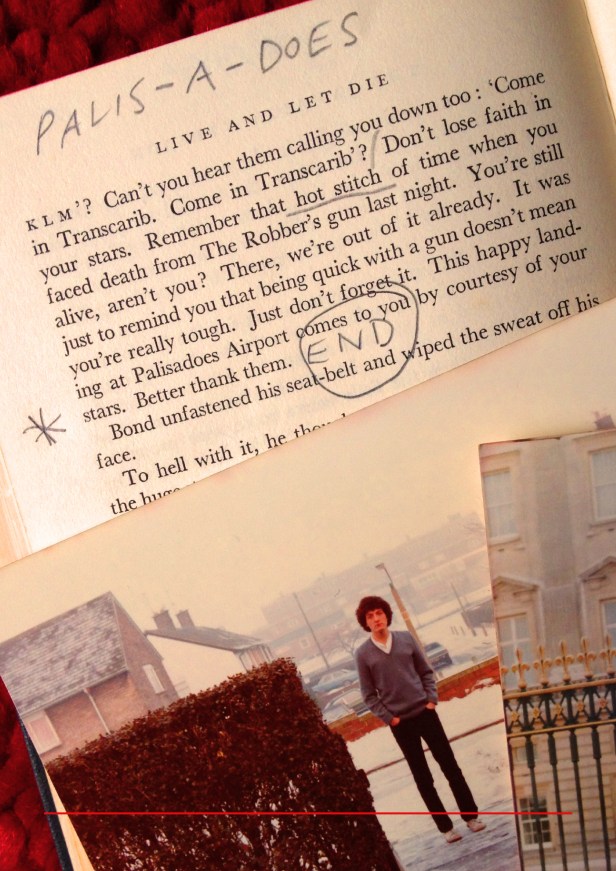 PALIS-A-DOES
LIVE AND LET DIE
KLM'? Can't you hear them calling you down too: 'Come
in Transcarib. Come in Transcarib'? Don't lose faith in
your stars. Remember that hot stitch of time when you
faced death from The Robber's gun last night. You're still
alive, aren't you? There, we're out of it already. It was
just to remind you that being quick with a gun doesn't mean
you're really tough. Just don't forget it. This happy land-
ing at Palisadoes Airport comes to you by courtesy of your
stars. Better thank them.
END
Bond unfastened his seat-belt and wiped the sweat off his
face.
To hell with it, he
the